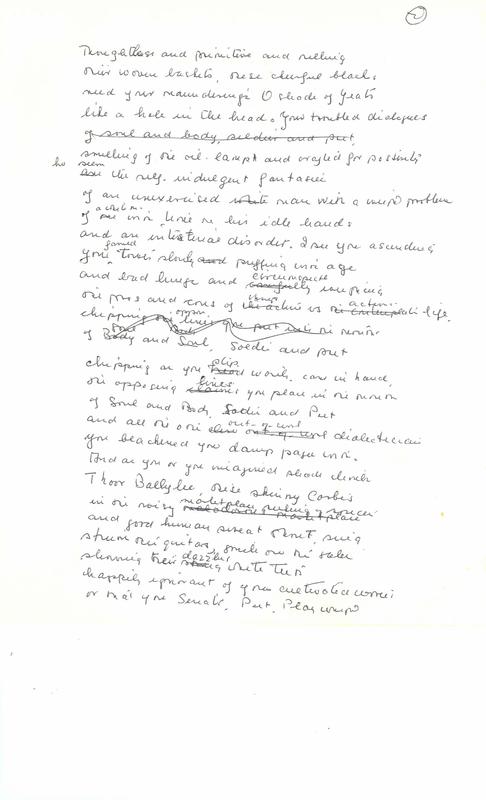 2
Thoughtless and primitive and selling
their woven baskets, these cheerful blacks
need your maunderings O shade of Yeats
like a hole in the head. Your troubled dialogues
of soul and body, soldier and poet,
smelling of the oil lamps and crafted for posterity
seem the self-indulgent fantasies
of an unexercised white man with a weight problem
of time on his idle hands
and an intestinal disorder. I see you ascending
your famed tower slowly and puffing with age
and bad lungs and circumspectly weighing
the pros and cons of the active vs the life.
chipping
of Body and Soul, Soldier and poet
chipping as you words, cane in hand,
the opposing lines you place in the mouths
of Soul and Body, Soldier and Poet
and all the other out of work dialecticians
you bleached your damp pages with.
And as you or your imagined shade climbs
Thoor Ballylee, these skinny Caribs
in the noisy marketplace of voices
and good human sweat shout, sing
strum their guitars, smile on the
showing their dazzling white teeth
happily ignorant of your cultivated worries
or that you Senator, Poet, Playwright